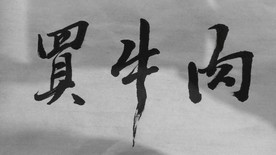 買牛肉